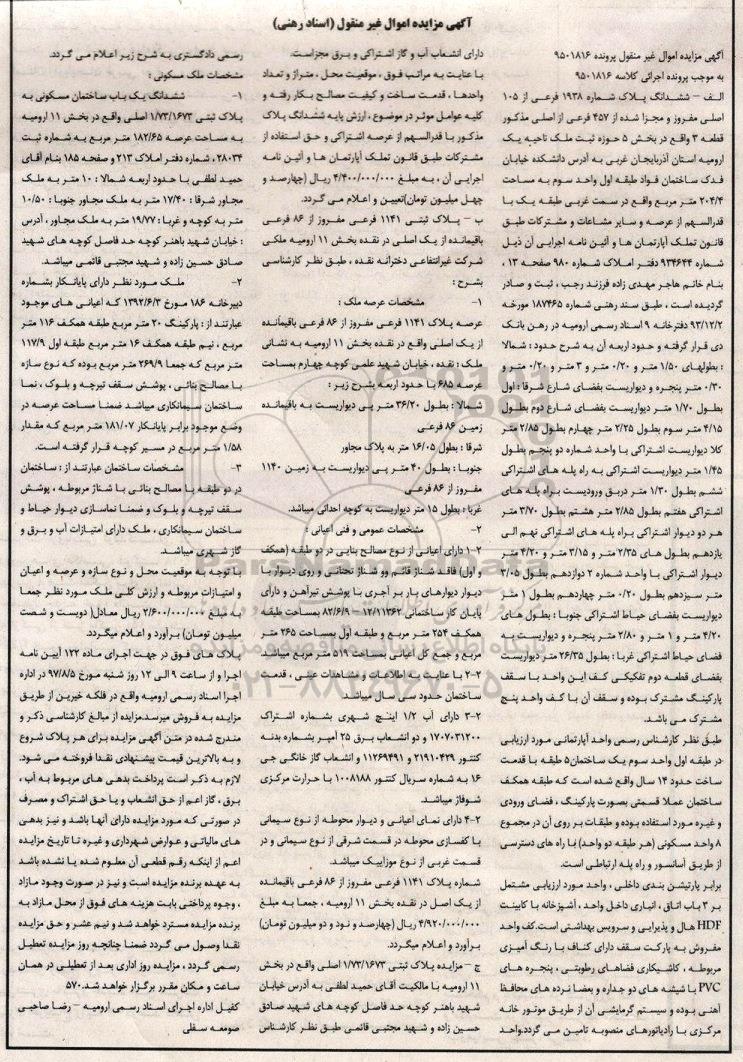 آگهی مزایده اموال غیر منقول (اسناد رهنی)
آگهی مزایده اموال غیر منقول پرونده ۹۵۰۱۸۱۶
به موجب پرونده اجرائی کلاسه ۹۵۰۱۸۱۶
الف – ششدانگ پلاک شماره ۱۹۳۸ فرعی از ۱۰۵
اصلی مفروز و مجزا شده از ۴۵۷ فرعی از اصلی مذکور
قطعه ۳ واقع در بخش ۵ حوزه ثبت ملک ناحیه یک
ارومیه استان آذربایجان غربی به آدرس دانشکده خیابان
فدک ساختمان فواد طبقه اول واحد سوم به مساحت
۲۰۴/۴ متر مربع واقع در سمت غربی طبقه یک با
قدرالسهم از عرصه و سایر مشاعات و مشترکات طبق
قانون تملک آپارتمان ها و آئین نامه اجرایی آن ذیل
شماره ۹۳۴۶۴۴ دفتر املاک شماره ۹۸۰ صفحه ۱۳ ،
بنام خانم هاجر مهدی زاده فرزند رجب ، ثبت و صادر
گردیده است ، طبق سند رهنی شماره ۱۸۷۴۶۵ مورخه
۹۳/۱۲/۲ دفترخانه ۹ اسناد رسمی ارومیه در رهن بانک
دی قرار گرفته و حدود اربعه آن به شرح حدود : شمالا
: بطولهای ۱/۵۰ متر و ۰/۲۰ متر و ۳ متر و ۰/۲۰ متر و
۰/۳۰ متر پنجره و دیواریست بفضای شارع شرقا : اول
بطول ۱/۷۰ متر دیواریست بفضای شارع دوم بطول
۴/۱۵ متر سوم بطول ۲/۲۵ متر چهارم بطول ۲/۸۵ متر
کلا دیواریست اشتراکی با واحد شماره دو پنجم بطول
۱/۴۵ متر دیواریست اشتراکی به راه پله های اشتراکی
ششم بطول ۱/۳۰ متر درب ورودیست براه پله های
اشتراکی هفتم بطول ۲/۸۵ متر هشتم بطول ۳/۷۰ متر
هر دو دیوار اشتراکی براه پله های اشتراکی نهم الی
یازدهم بطول های ۲/۳۵ متر و ۳/۱۵ متر و ۴/۲۰ متر
دیوار اشتراکی با واحد شماره ۲ دوازدهم بطول ۳/۰۵
متر سیزدهم بطول ۰/۲۰ متر چهاردهم بطول ۱ متر
دیواریست بفضای حیاط اشتراکی جنوبا : بطول های
۴/۲۰ متر و ۱ متر و ۲/۸۰ متر پنجره و دیواریست به
فضای حیاط اشتراکی غربا : بطول ۲۶/۳۵ متر دیواریست
بفضای قطعه دوم تفکیکی کف این واحد با سقف
پارکینگ مشترک بوده و سقف آن با کف واحد پنج
مشترک می باشد.
طبق نظر کارشناس رسمی واحد آپارتمانی مورد ارزیابی
در طبقه اول واحد سوم یک ساختمان ۵ طبقه با قدمت
ساخت حدود ۱۴ سال واقع شده است که طبقه همکف
ساختمان عملا قسمتی بصورت پارکینگ ، فضای ورودی
و غیره مورد استفاده بوده و طبقات بر روی آن در مجموع
۸ واحد مسکونی (هر طبقه دو واحد) با راه های دسترسی
از طریق آسانسور و راه پله ارتباطی است.
برابر پارتیشن بندی داخلی ، واحد مورد ارزیابی مشتمل
بر ۳ باب اتاق ، انباری داخل واحد ، آشپزخانه با کابینت
HDF هال و پذیرایی و سرویس بهداشتی است.کف واحد
مفروش به پارکت سقف دارای کناف با رنگ آمیزی
مربوطه ، کاشیکاری فضاهای رطوبتی ، پنجره های
PVC با شیشه های دو جداره و بعضا نرده های محافظ
آهنی بوده و سیستم گرمایشی آن از طریق موتور خانه
مرکزی با رادیاتورهای منصوبه تامین می گردد.واحد
دارای انشعاب آب و گاز اشتراکی و برق مجزاست.
با عنایت به مراتب فوق ، موقعیت محل ، متراژ و تعداد
واحدها ، قدمت ساخت و کیفیت مصالح بکار رفته و
کلیه عوامل موثر در موضوع ، ارزش پایه ششدانگ پلاک
مذکور با قدرالسهم از عرصه اشتراکی و حق استفاده از
مشترکات طبق قانون تملک آپارتمان ها و آئین نامه
اجرایی آن ، به مبلغ ۴/۴۰۰/۰۰۰/۰۰۰ ریال (چهارصد و
چهل میلیون تومان)تعیین و اعلام می گردد.
ب – پلاک ثبتی ۱۱۴۱ فرعی مفروز از ۸۶ فرعی
باقیمانده از یک اصلی در نقده بخش ۱۱ ارومیه ملکی
شرکت غیرانتفاعی دخترانه نقده ، طبق نظر کارشناسی
بشرح :
۱- مشخصات عرصه ملک :
عرصه پلاک ۱۱۴۱ فرعی مفروز از ۸۶ فرعی باقیمانده
از یک اصلی واقع در نقده بخش ۱۱ ارومیه به نشانی
ملک : نقده ، خیابان شهید علمی کوچه چهارم بمساحت
عرصه ۶۸۵ با حدود اربعه بشرح زیر :
شمالا : بطول ۳۶/۲۰ متر پی دیواریست به باقیمانده
زمین ۸۶ فرعی
شرقا : بطول ۱۶/۰۵ متر به پلاک مجاور
جنوبا : بطول ۴۰ متر پی دیواریست به زمین ۱۱۴۰
مفروز از ۸۶ فرعی
غربا : بطول ۱۵ متر دیواریست به کوچه احداثی میباشد.
۲- مشخصات عمومی و فنی اعیانی :
۱-۲ دارای اعیانی از نوع مصالح بنایی در دو طبقه (همکف
و اول) فاقد شناژ قائم وو شناژ تحتانی و روی دیوار با
دیوار دیوارهای بار بر آجری با پوشش تیرآهن و دارای
پایان کار ساختمانی ۱۲/۱۱۳۶۲–۸۲/۶/۹ بمساحت طبقه
همکف ۲۵۴ متر مربع و طبقه اول بمساحت ۲۶۵ متر
مربع و جمع کل اعیانی بمساحت ۵۱۹ متر مربع میباشد
۲-۲ با عنایت به اطلاعات و مشاهدات عینی ، قدمت
ساختمان حدود سی سال میباشد.
۳-۲ دارای آب ۱/۲ اینچ شهری بشماره اشتراک
۱۷۰۷۰۳۱۲۰۰ و دو انشعاب برق ۲۵ آمپر بشماره بدنه
کنتور ۲۱۹۱۰۴۲۹ و ۱۱۲۶۹۴۹۱ و انشعاب گاز خانگی جی
۱۶ به شماره سریال کنتور ۱۰۰۸۱۸۸ با حرارت مرکزی
شوفاژ میباشد.
۴-۲ دارای نمای اعیانی و دیوار محوطه از نوع سیمانی
با کفسازی محوطه در قسمت شرقی از نوع سیمانی و در
قسمت غربی از نوع موزاییک میباشد.
شماره پلاک ۱۱۴۱ فرعی مفروز از ۸۶ فرعی باقیمانده
از یک اصل در نقده بخش ۱۱ ارومیه ، جمعا به مبلغ
۴/۹۲۰/۰۰۰/۰۰۰ ریال (چهارصد و نود و دو میلیون تومان)
برآورد و اعلام میگردد.
ج – مزایده پلاک ثبتی ۱/۷۳/۱۶۷۳ اصلی واقع در بخش
۱۱ ارومیه با مالکیت آقای حمید لطفی به آدرس خیابان
شهید باهنر کوچه حد فاصل کوچه های شهید صادق
حسین زاده و شهید مجتبی قائمی طبق نظر کارشناس
رسمی دادگستری به شرح زیر اعلام می گردد.
مشخصات ملک مسکونی :
۱- ششدانگ یک باب ساختمان مسکونی به
پلاک ثبتی ۱/۷۳/۱۶۷۳ اصلی واقع در بخش ۱۱ ارومیه
به مساحت عرصه ۱۸۲/۶۵ متر مربع به شماره ثبت
۲۸۰۳۴ ، شماره دفتر املاک ۲۱۳ و صفحه ۱۸۵ بنام آقای
حمید لطفی با حدود اربعه شمالا : ۱۰ متر به ملک
مجاور شرقا : ۱۷/۴۰ متر به ملک مجاور جنوبا : ۱۰/۵۰
متر به کوچه و غربا : ۱۹/۷۷ متر به ملک مجاور ، آدرس
: خیابان شهید باهنر کوچه حد فاصل کوچه های شهید
صادق حسین زاده و شهید مجتبی قائمی میباشد.
۲- ملک مورد نظر دارای پایانکار بشماره
دبیرخانه ۱۸۶ مورخ ۱۳۹۲/۶/۳ که اعیانی های موجود
عبارتند از : پارکینگ ۲۰ متر مربع طبقه همکف ۱۱۶ متر
مربع ، نیم طبقه همکف ۱۶ متر مربع طبقه اول ۱۱۷/۹
متر مربع که جمعا ۲۶۹/۹ متر مربع بوده که نوع سازه
با مصالح بنائی ، پوشش سقف تیرچه و بلوک ، نما
ساختمان سیمانکاری میباشد ضمنا مساحت عرصه در
وضع موجود برابر پایانکار ۱۸۱/۰۷ متر مربع که مقدار
۱/۵۸ متر مربع در مسیر کوچه قرار گرفته است.
۳- مشخصات ساختمان عبارتند از : ساختمان
در دو طبقه با مصالح بنائی با شناژ مربوطه ، پوشش
سقف تیرچه و بلوک و ضمنا نماسازی دیوار حیاط و
ساختمان سیمانکاری ، ملک دارای امتیازات آب و برق و
گاز شهری میباشد.
با توجه به موقعیت محل و نوع سازه و عرصه و اعیان
و امتیازات مربوطه و ارزش کلی ملک مورد نظر جمعا
به مبلغ ۲/۶۰۰/۰۰۰/۰۰۰ ریال معادل( دویست و شصت
میلیون تومان) برآورد و اعلام میگردد.
پلاک های فوق در جهت اجرای ماده ۱۲۲ آیین نامه
اجرا و از ساعت ۹ الی ۱۲ روز شنبه مورخ ۹۷/۸/۵ در اداره
اجرا اسناد رسمی ارومیه واقع در فلکه خیرین از طریق
مزایده به فروش میرسد.مزایده از مبالغ کارشناسی ذکر و
مندرج شده در متن آگهی مزایده برای هر پلاک شروع
و به بالاترین قیمت پیشنهادی نقدا فروخته می شود.
لازم به ذکر است پرداخت بدهی های مربوط به آب ،
برق ، گاز اعم از حق انشعاب و یا حق اشتراک و مصرف
در صورتی که مورد مزایده دارای آنها باشد و نیز بدهی
های مالیاتی و عوارض شهرداری و غیره تا تاریخ مزایده
اعم از اینکه رقم قطعی آن معلوم شده یا نشده باشد
به عهده برنده مزایده است و نیز در صورت وجود مازاد
، وجوه پرداختی بابت هزینه های فوق از محل مازاد به
برنده مزایده مسترد خواهد شد و نیم عشر و حق مزایده
نقدا وصول می گردد ضمنا چنانچه روز مزایده تعطیل
رسمی گردد ، مزایده روز اداری بعد از تعطیلی در همان
ساعت و مکان مقرر برگزار خواهد شد.۵۷۰
کفیل اداره اجرای اسناد رسمی ارومیه – رضا صاحبی
صومعه سفلی